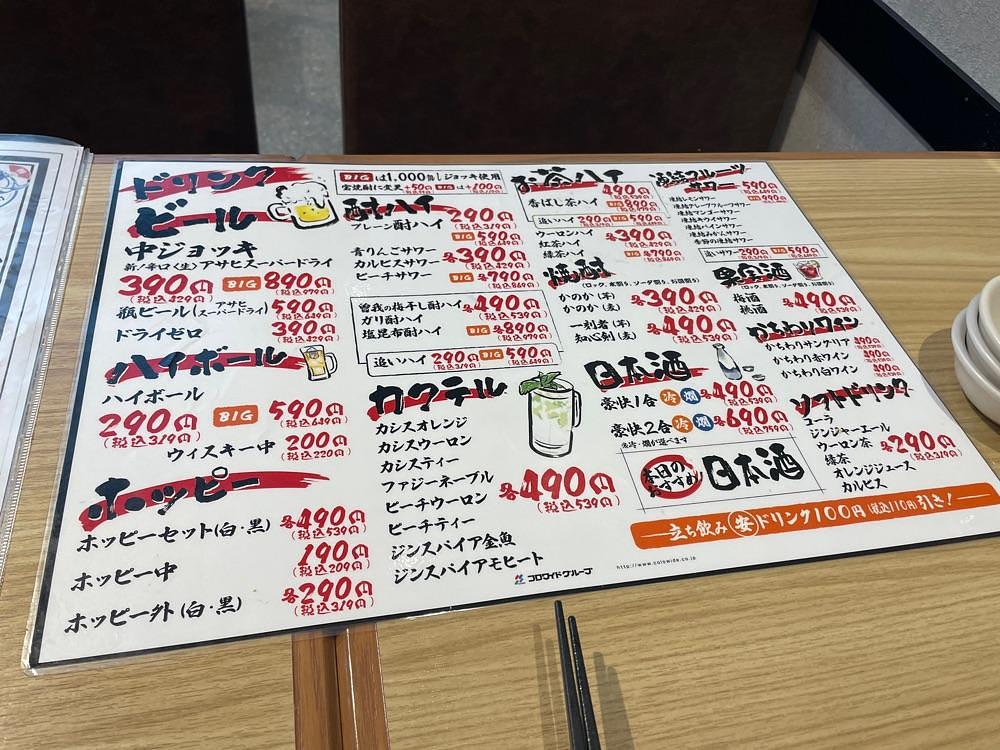 ドリンク
ビール
中ジョッキ
新ノ辛口〈生〉アサヒスーパードライ
390円 (税込429円) BIG 890円 (税込979円)
瓶ビール(アサヒスーパードライ) 590円 (税込649円)
ドライゼロ 390円 (税込429円)
ハイボール
ハイボール
290円 (税込319円) BIG 590円 (税込649円)
ウィスキー中 200円 (税込220円)
ホッピー
ホッピーセット(白・黒) 各490円 (税込539円)
ホッピー中 190円 (税込209円)
ホッピー外(白・黒) 各290円 (税込319円)
BIGは1,000㎖ ジョッキ使用
宝焼酎に変更+50円 BIGは+100円
酎ハイ
プレーン酎ハイ 290円 (税込319円)
BIG 590円 (税込649円)
青りんごサワー
カルピスサワー
ピーチサワー
各390円 (税込429円)
BIG 各790円 (税込869円)
曽我の梅干し酎ハイ
ガリ酎ハイ
塩昆布酎ハイ
各490円 (税込539円)
BIG 各890円 (税込979円)
追いハイ 290円 (税込319円) BIG 590円 (税込649円)
カクテル
カシスオレンジ
カシスウーロン
カシスティー
ファジーネーブル
ピーチウーロン
ピーチティー
ジンスパイア金魚
ジンスパイアモヒート
各490円 (税込539円)
お茶ハイ
香ばし茶ハイ 490円 (税込539円)
BIG 890円 (税込979円)
追いハイ 290円 (税込319円) BIG 590円 (税込649円)
ウーロンハイ
紅茶ハイ
緑茶ハイ
各390円 (税込429円)
BIG 各790円 (税込869円)
焼酎
(ロック、水割り、ソーダ割り、お湯割り)
かのか(芋)
かのか(麦)
各390円 (税込429円)
一刻者(芋)
知心剣(麦)
各490円 (税込539円)
日本酒
豪快1合 冷 燗 各490円 (税込539円)
豪快2合 冷 燗 各690円 (税込759円)
※冷・燗が選べます
本日のおすすめ 日本酒
凍結フルーツサワー
各590円 (税込649円)
BIG 各990円
凍結レモンサワー
凍結グレープフルーツサワー
凍結マンゴーサワー
凍結キウイサワー
凍結パインサワー
凍結みかんサワー
季節の凍結サワー
追いサワー 290円 (税込319円) BIG 590円 (税込649円)
果実酒
(ロック、水割り、ソーダ割り、お湯割り)
梅酒
桃酒
各490円 (税込539円)
かちわりワイン
かちわりサングリア 490円 (税込539円)
かちわり赤ワイン 490円 (税込539円)
かちわり白ワイン 490円 (税込539円)
ソフトドリンク
コーラ
ジンジャーエール
ウーロン茶
緑茶
オレンジジュース
カルピス
各290円 (税込319円)
立ち飲み 安 ドリンク100円 (税込110円) 引き!
コロワイドグループ
http://www.colowide.co.jp